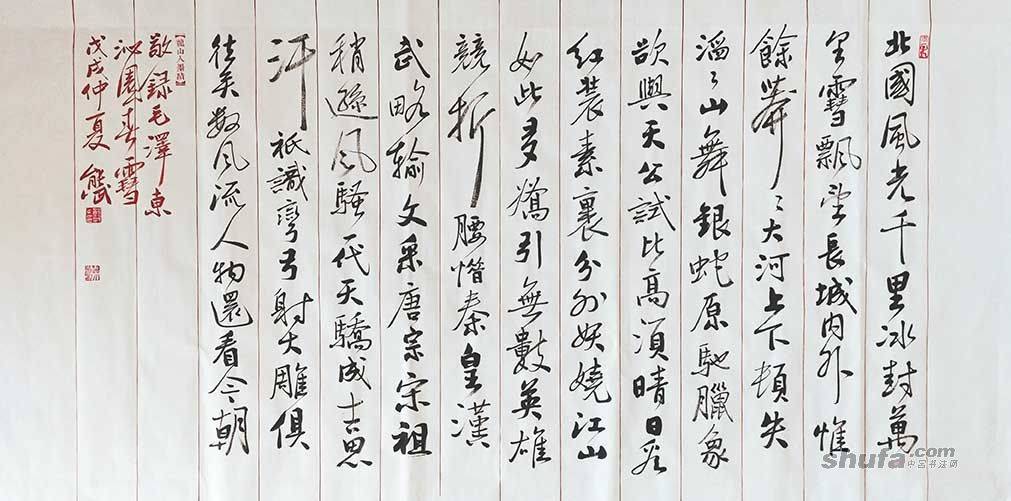 北國風光千里冰封萬
里雪飄望長城内外惟
餘莽〻大河上下頓失
滔〻山舞銀蛇原馳臘象
欲與天公試比高須晴日看
红裝素裹分外妖嬈江山
如此多嬌引無數英雄
競折腰惜秦皇漢
武略輸文采唐宗宋祖
稍遜風騷一代天驕成吉思
汗祇識彎弓射大雕俱
往矣數風流人物還看今朝
敬録毛澤東
沁園春雪
戊戌仲夏
shufa.com
中国书法网